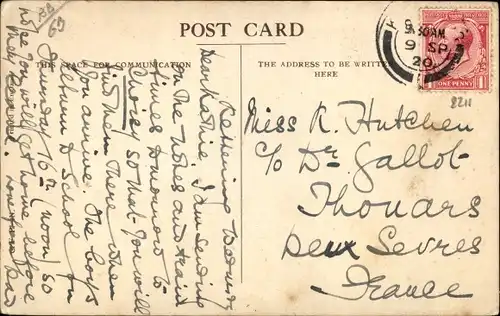 20
69
POST CARD
THIS SPACE FOR COMMUNICATION
THE ADDRESS TO BE WRITTEN
HERE
9.30AM
9 SP
20
ONE PENNY
8211
Kettering Wednesday
Dear Kathie. I am sending
on the notes and train
times tomorrow to
Choisy so that you will
find them there when
you arrive. The boys
return to School on
Saturday 16th (noon) so
hope you will get home before
they
love from Dad
Miss K. Hutchen
c/o Dr. Gallot
Thouars
Deux Sevres
France